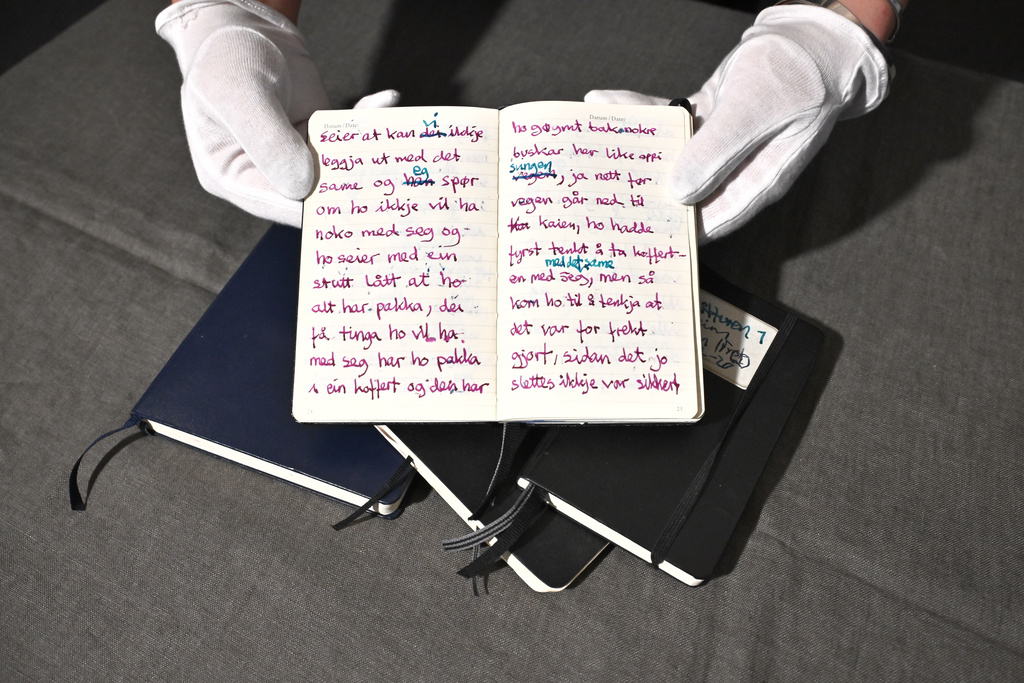 Datum / Date
seier at kan vi dei ikkje
leggja ut med det
same og eg han spør
om ho ikkje vil ha
noko med seg og
ho seier med ein
stutt lått at ho
alt har pakka, dei
få tinga ho vil ha
med seg har ho pakka
i ein koffert og den har
21
Datum / Date
ho gøymt bak nokre
buskar her like oppi
sungen
vegen, ja rett før
vegen går ned til
kaien, ho hadde
fyrst tenkt å ta koffert-
med det same
en med seg, men så
kom ho til å tenkja at
det var for frekt
gjort, sidan det jo
slettes ikkje var sikkert
7